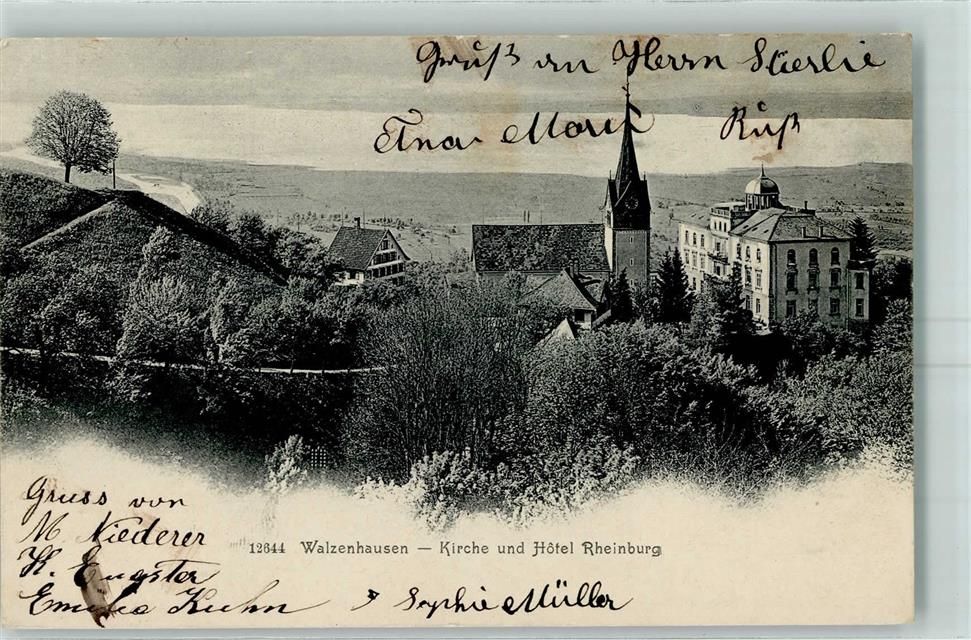 Gruß an Herrn Stierlie
Etna Marie Rüß
Gruss von
M. Niederer
K. Eugster
Emilia Kuhn Sophie Müller
12644 Walzenhausen – Kirche und Hôtel Rheinburg